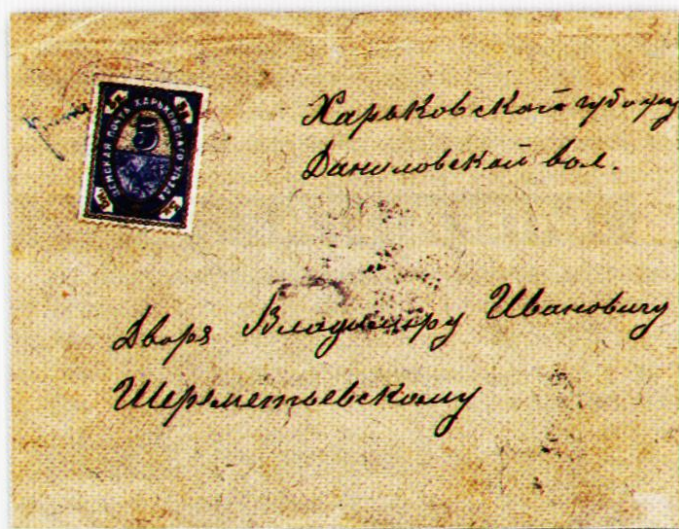 ЗЕМСКАЯ ПОЧТА ХАРЬКОВСКАГО УѢЗДА
5
Харьковской губ
Даниловской вол.
Дворя Владимиру Ивановичу
Шереметьевскому